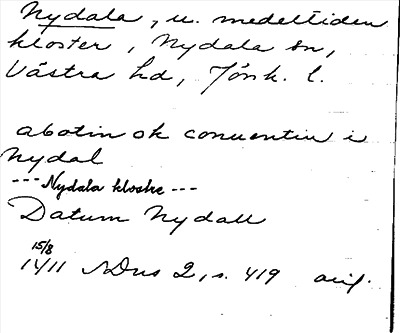 Nydala, u. medeltiden
kloster, Nydala sn,
Västra hd, Jönk. l.
abotin ok conuentin i
Nydal
---Nydala kloster---
Datum Nydall
15/8
1411 SDns 2, s. 419 avs.